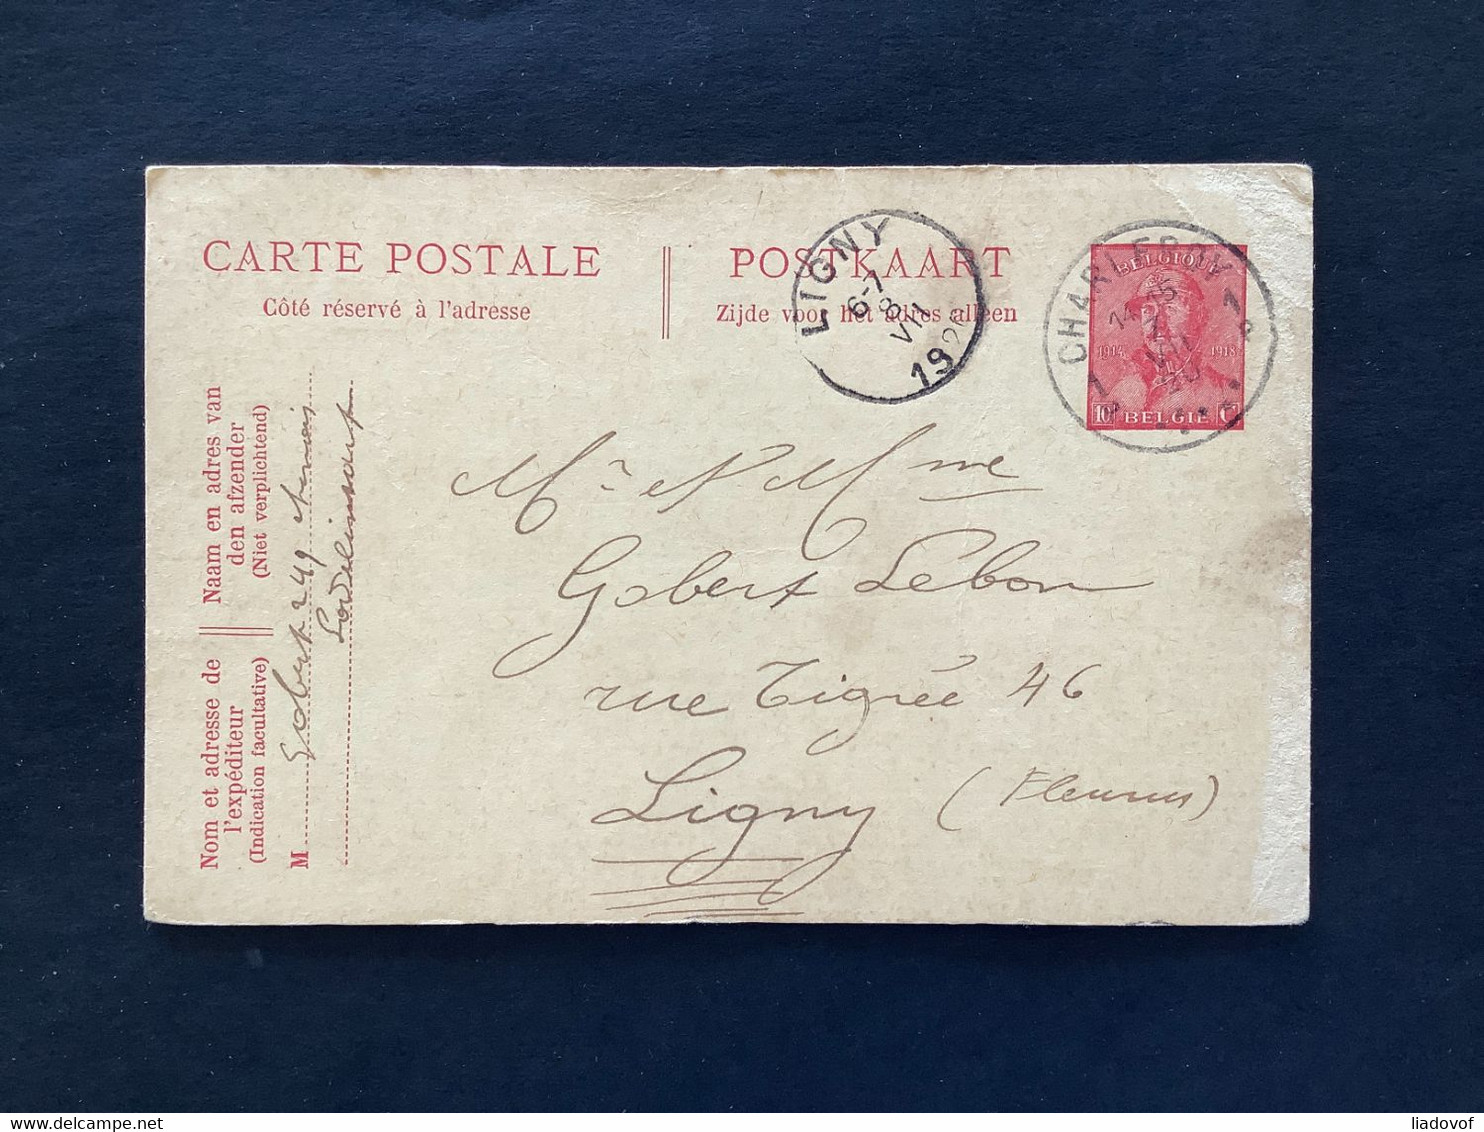 CARTE POSTALE
Côté réservé à l'adresse
POSTKAART
Zijde voor het adres alleen
LIGNY
6-7
8
VII
192
CHARLEROY 1
14-15
7
VII
20
1
BELGIQUE
1914 1918
10 C
BELGIË
Mr et Mme
Gobert Lebon
rue Tigrée 46
Ligny (Fleurus)
Naam en adres van
den afzender
(Niet verplichtend)
Nom et adresse de
l'expéditeur
(Indication facultative)
M Gobert 249
Lodelinsart
delcampe.net
liadovof